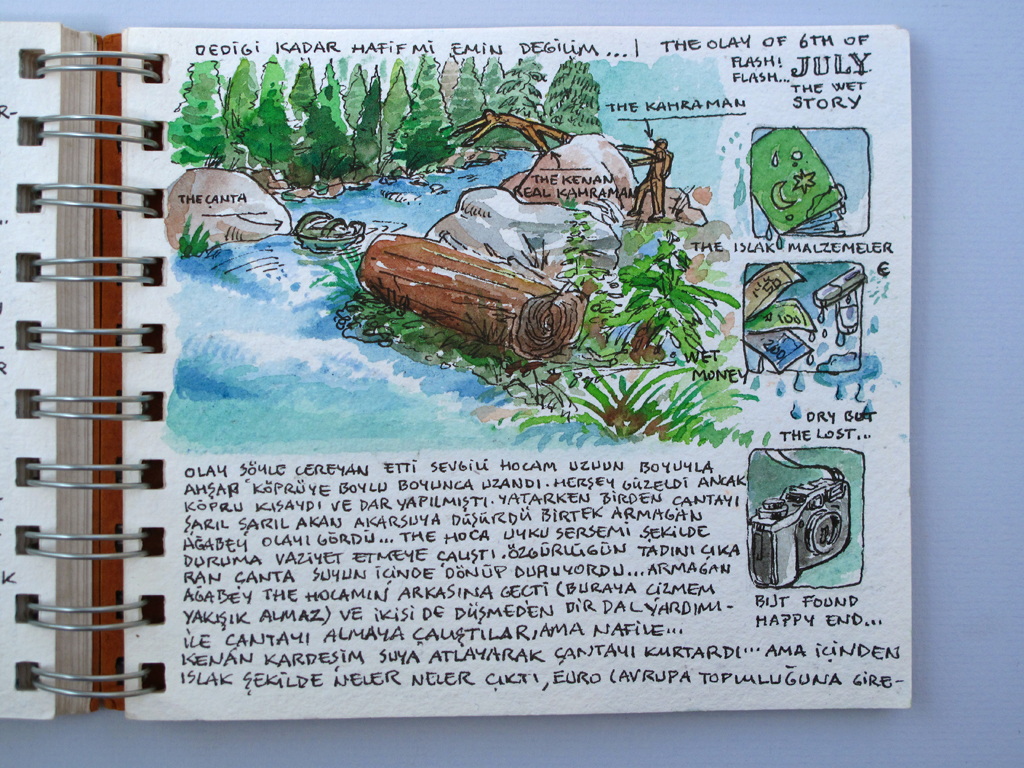 DEDİGİ KADAR HAFİF Mİ EMİN DEGİLİM...
THE OLAY OF 6TH OF
FLASH!
FLASH...
JULY
THE WET
STORY
THE KAHRAMAN
THE KENAN
REAL KAHRAMAN
THE ÇANTA
THE ISLAK MALZEMELER
€
50
100
200
WET
MONEY
DRY BUT
THE LOST...
BUT FOUND
HAPPY END...
OLAY ŞÖYLE CEREYAN ETTİ SEVGİLİ HOCAM UZUUN BOYUYLA
AHŞAP KÖPRÜYE BOYLU BOYUNCA UZANDI. HERŞEY GÜZELDİ ANCAK
KÖPRÜ KISAYDI VE DAR YAPILMIŞTI. YATARKEN BİRDEN ÇANTAYI
ŞARIL ŞARIL AKAN AKARSUYA DÜŞÜRDÜ BİRTEK ARMAGAN
AĞABEY OLAYI GÖRDÜ... THE HOCA UYKU SERSEMİ ŞEKİLDE
DURUMA VAZİYET ETMEYE ÇALIŞTI. ÖZGÜRLÜGÜN TADINI ÇIKA
RAN ÇANTA SUYUN İÇİNDE DÖNÜP DURUYORDU... ARMAGAN
AĞABEY THE HOCAMIN ARKASINA GEÇTİ (BURAYA ÇİZMEM
YAKIŞIK ALMAZ) VE İKİSİ DE DÜŞMEDEN BİR DAL YARDIMI-
İLE ÇANTAYI ALMAYA ÇALIŞTILAR, AMA NAFİLE...
KENAN KARDEŞİM SUYA ATLAYARAK ÇANTAYI KURTARDI... AMA İÇİNDEN
ISLAK ŞEKİLDE NELER NELER ÇIKTI, EURO (AVRUPA TOPLULUĞUNA GİRE-